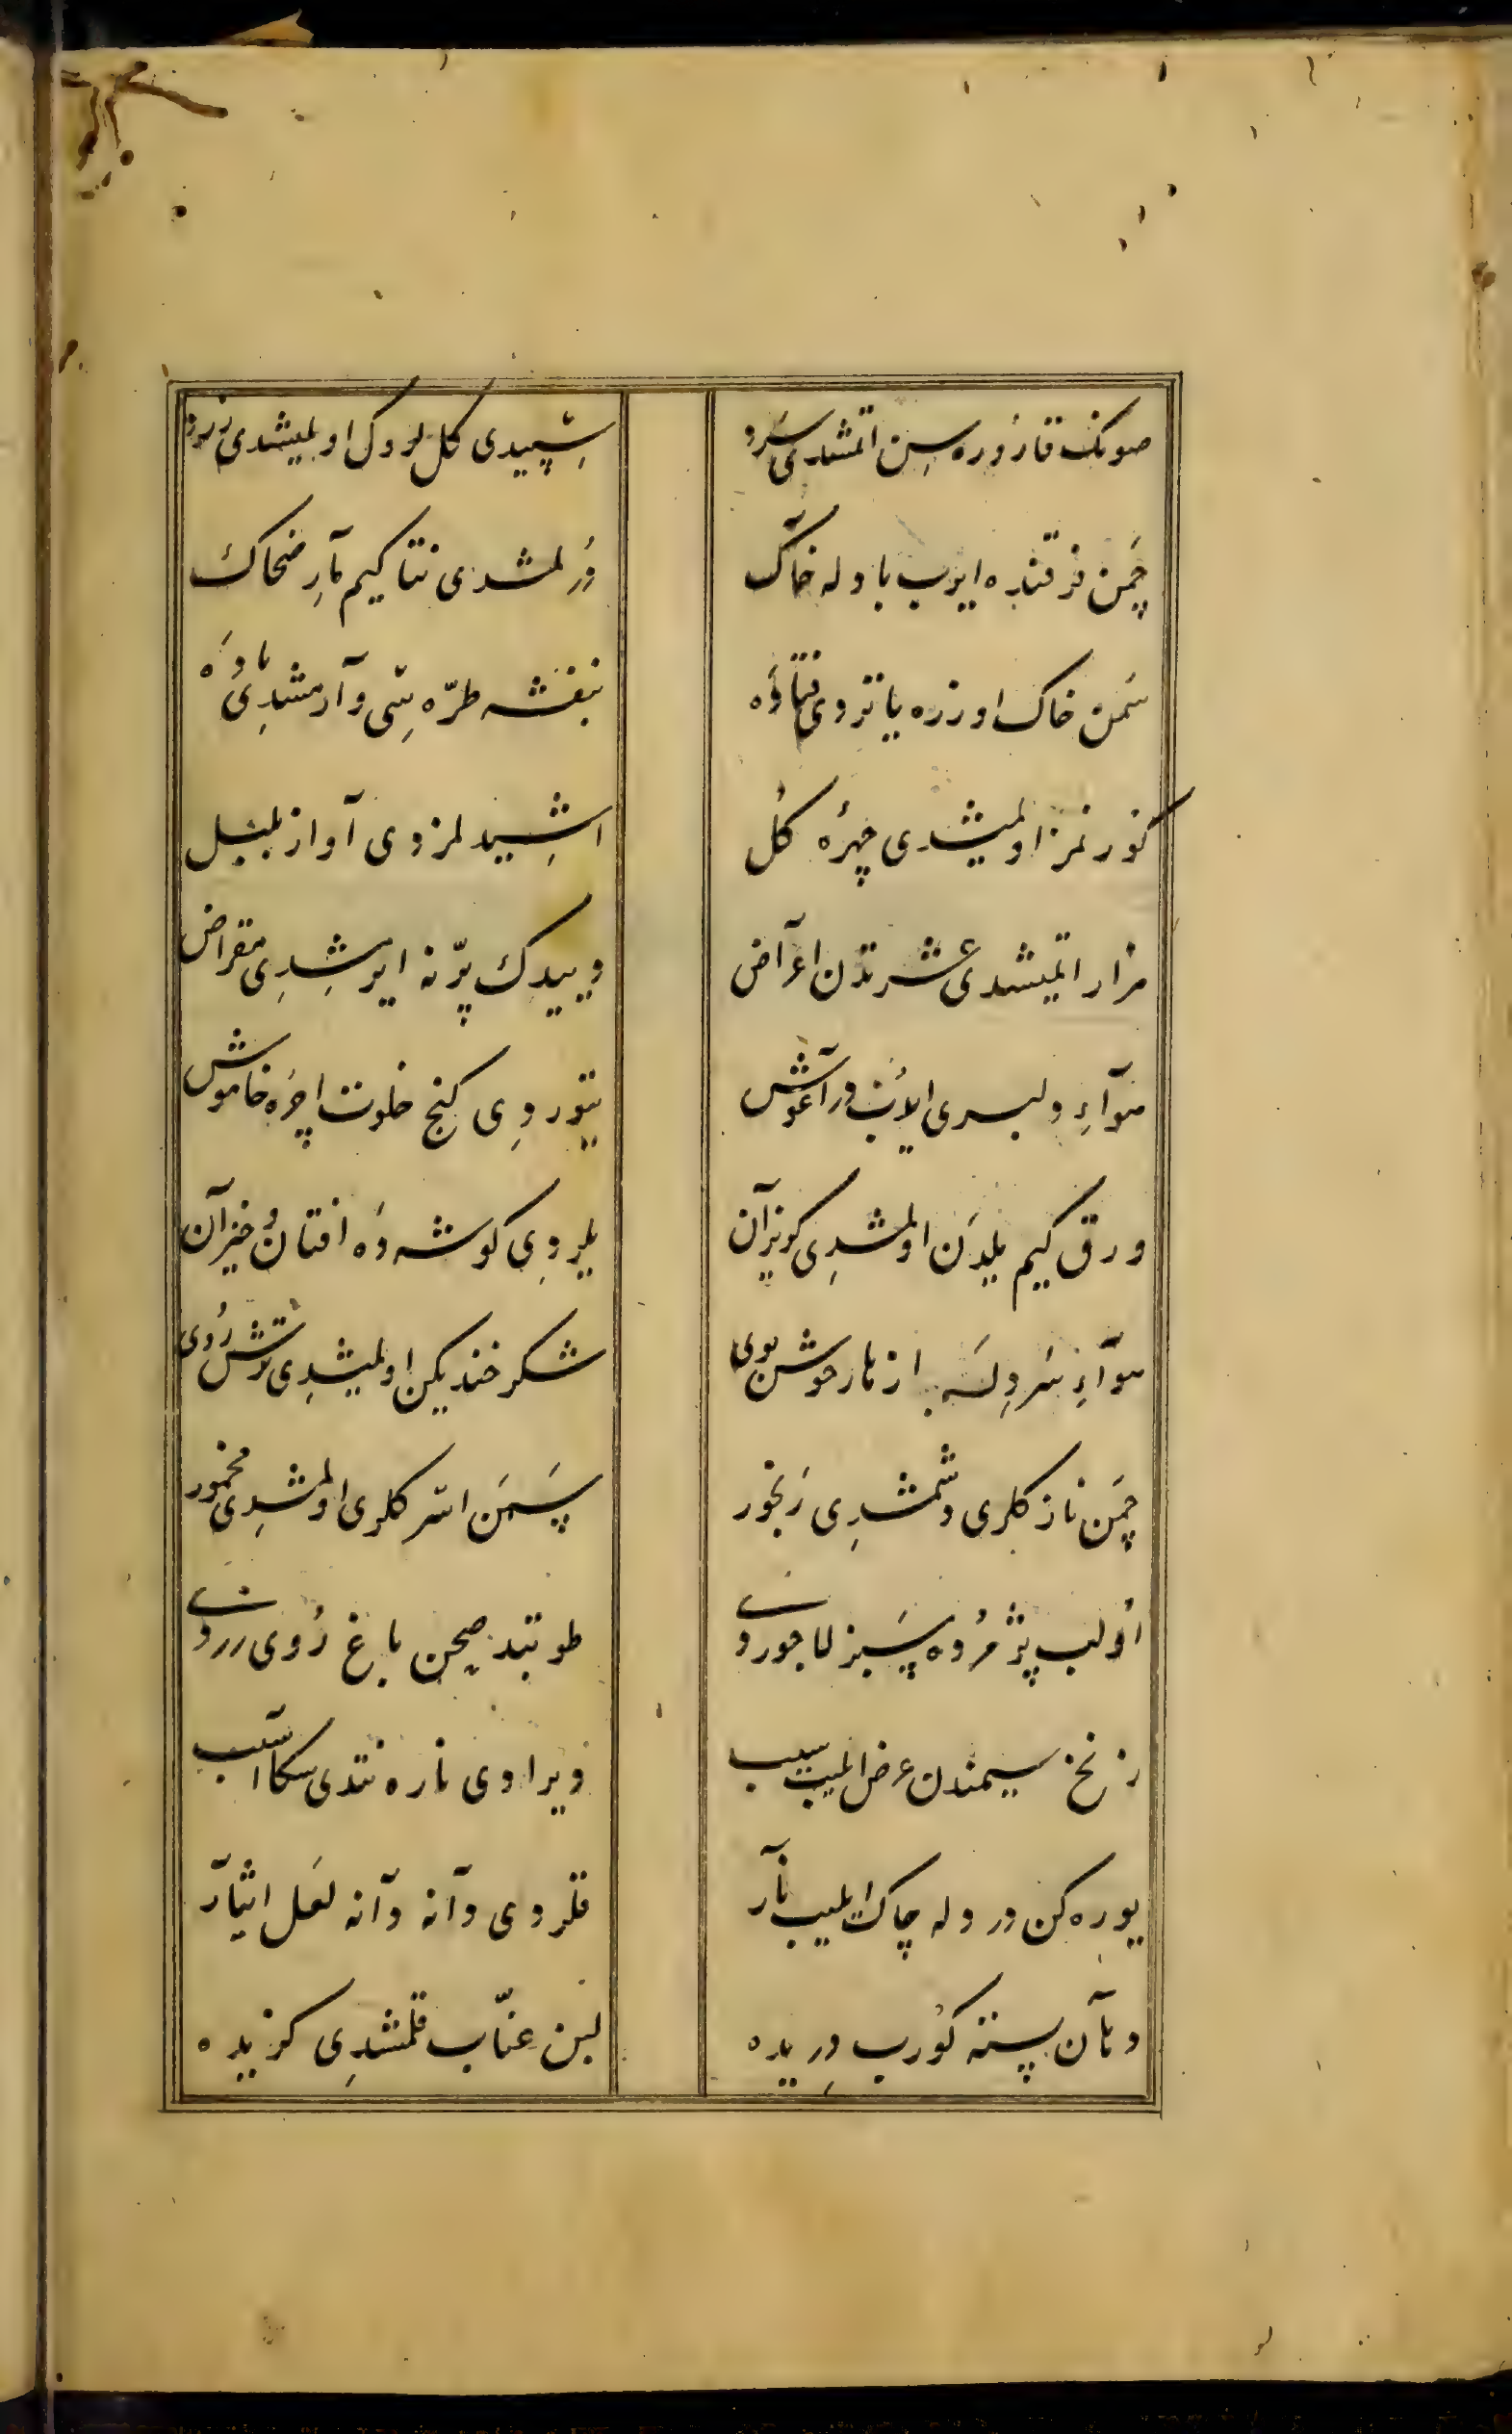 صونک قارُوره سِن اتمشدی سَرد
سِپیدی کل لروک اولمیشدی زرد
چَمن فرقتنده ایرب باد له خاک
دُرلمشدی نتاکیم مآرِ ضحاک
سَمن خاک اوزره یاتردی فتاده
بنفشه طرّه سِنی وآرمشدِی باده
کورنمز اولمیشدی چهرهٔ کُل
اشِیدلمزدی آواز بلبل
هزار اتمیشدی عشرتدن اعرآض
وییدک پرّنه ایرمشِدِی مقراض
هوآءِ دلبری الُب درآغوش
یتوردِی کنج خلوت اچره خاموش
ورق کیم یلدَن اولمشدِی کریزآن
یلردِی کوشه دَه افتان وُ خیزآن
هوآءِ سَردِلَه ازهار خوش بوی
شکر خندیکن اولمیشدِی ترش رُوی
چمَن نازکلری دشمشدِی رَنجور
سَمَن استرکلری اولمشدِی مخمور
اُولب پژمرُده سَبز لاجوردت
طوتبتد صحن باغ رُوی زردت
زنخ سیمندن عرض ایلیب سیب
ویرردی ناره نتدی سکا آسیب
یوره کن درد له چاک ایلیب نآر
قلردی دآنه دآنه لعَل ایثآر
دهآن پسته کورب دِریده
لبن عنّاب قلمشدِی کزیده